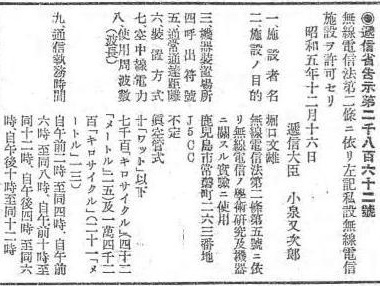 ◉遞信省告示第二千八百六十二號
無線電信法第二條ニ依リ左記私設無線電信
施設ヲ許可セリ
昭和五年十二月十六日
遞信大臣 小泉又次郎
一、施設者名 堀口文雄
二、施設ノ目的 無線電信法第二條第五號ニ依
リ無線電信ノ學術研究及機器
ニ關スル實驗ニ使用
三、機器裝置場所 鹿兒島市常磐町二六三番地
四、呼出符號 J5CC
五、通常通達距離 不定
六、裝置方式 眞空管式
七、空中線電力 十「ワット」以下
八、使用周波數(波長) 七千百「キロサイクル」(四十二
「メートル」二五)及一萬四千二
百「キロサイクル」(二十一「メ
ートル」一三)
九、通信執務時間 自午前二時至同四時、自午前
六時至同八時、自午前十時至
同十二時、自午後四時至同六
時、自午後十時至同十二時